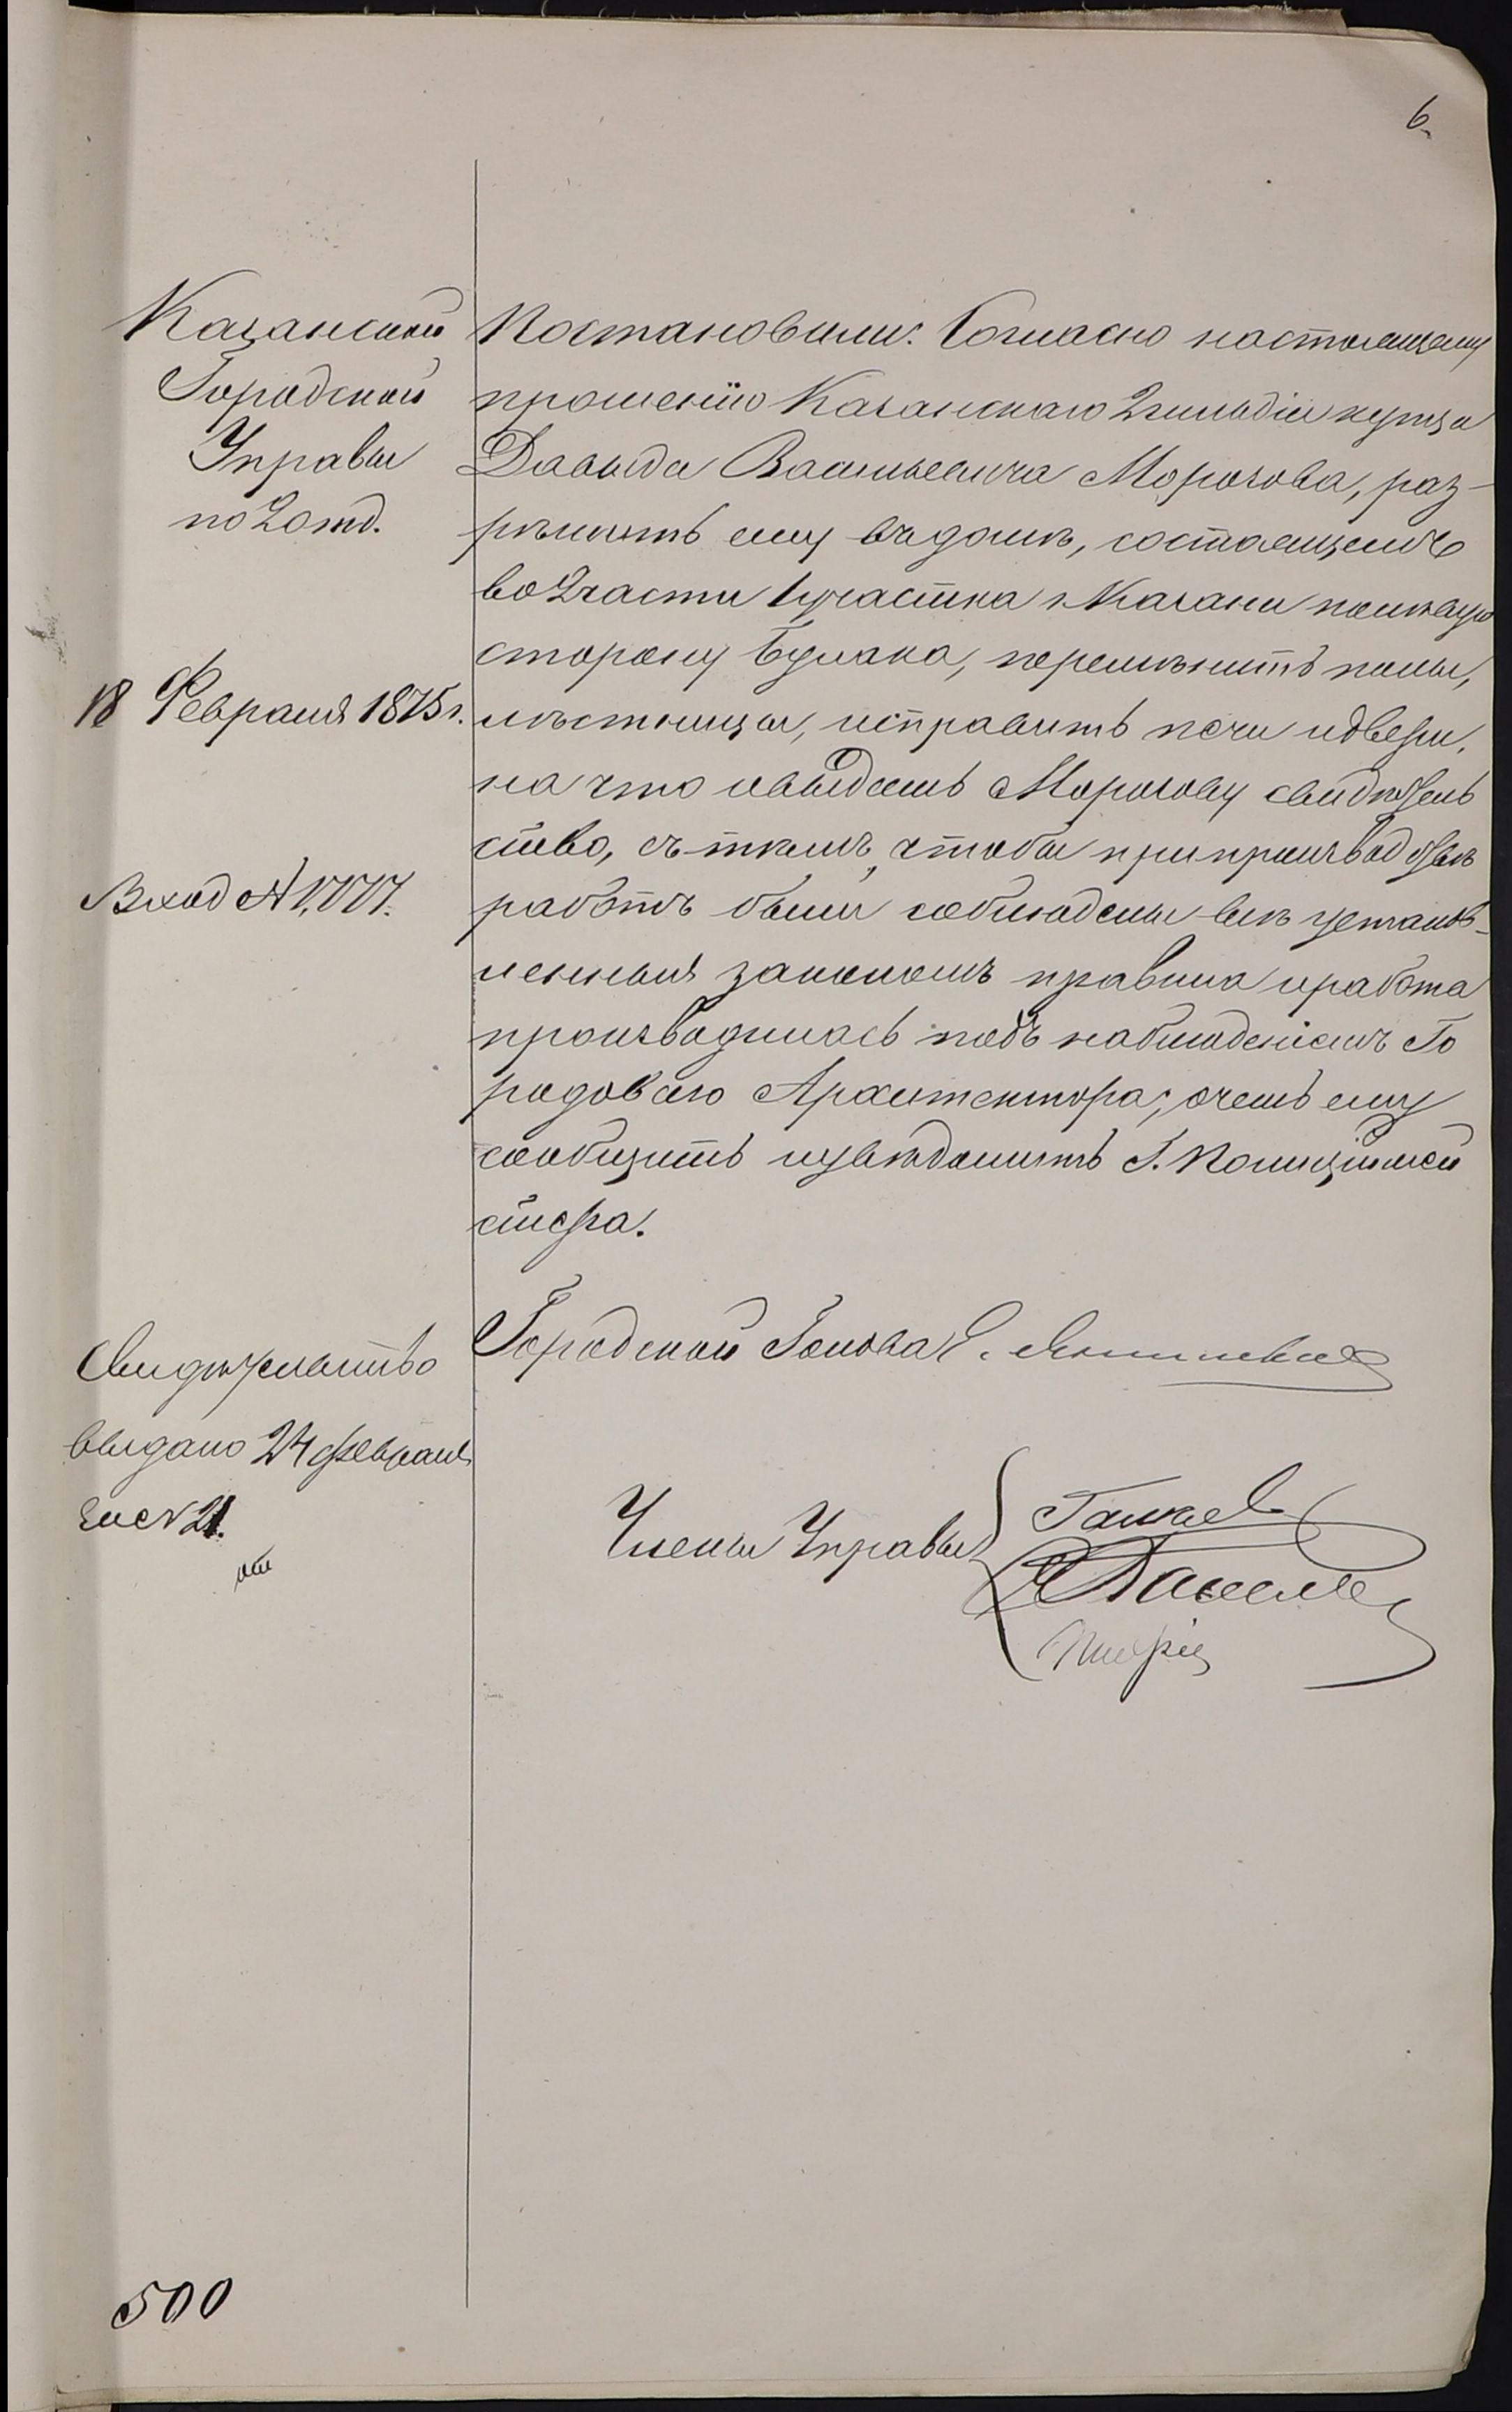 6.
Казанской
Городской
Управы
по 2 отд.
18 Февраля 1875 г.
Вход № 1,777.
Свидѣтельство
выдано 24 февраля
за № 21.
500
Постановили: Согласно настоящему
прошенію Казанскаго 2 гильдіи купца
Давыда Васильевича Морозова, раз-
рѣшить ему въ домѣ, состоящемъ
во 2 части 1 участка г. Казани по лѣвую
сторону Булака, перемѣнить полы,
лѣстницы, исправить печи и двери,
на что и выдать Морозову свидѣтель
ство, съ тѣмъ, чтобы при производствѣ
работъ были соблюдены всѣ установ-
ленныя закономъ правила и работа
производилась подъ наблюденіемъ Го
родоваго Архитектора; о чемъ ему
сообщить и увѣдомить Г. Полиціймей
стера.
Городской Голова Э. Янишевскій
Члены Управы